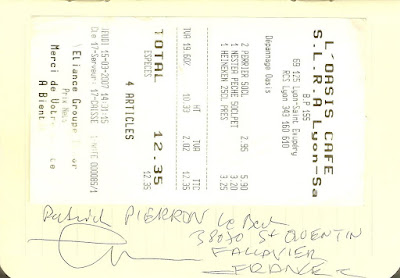 L'OASIS CAFE
S.L.R.A Lyon-Sa
B.P 155
69 125 Lyon-Saint Exupéry
RCS Lyon 343 160 610
Dépannage Oasis
2 PERRIER 50CL 2.95 5.90
1 NESTEA PECHE 50CLPET 3.20
1 HEINEKEN 25CL PRES 3.25
HT TVA TTC
TVA 19.60% 10.33 2.02 12.35
TOTAL 12.35
ESPECES 12.35
4 ARTICLES
JEUDI 15-03-2007 14:31:15
17-Serveur: 17-CAISSE NOTE 000085/1
Eliance Groupe
Prix Nets
Merci de Votre
A Bient
Patrick PIERRON Le Bert
38070 St QUENTIN
FALLAVIER
FRANCE